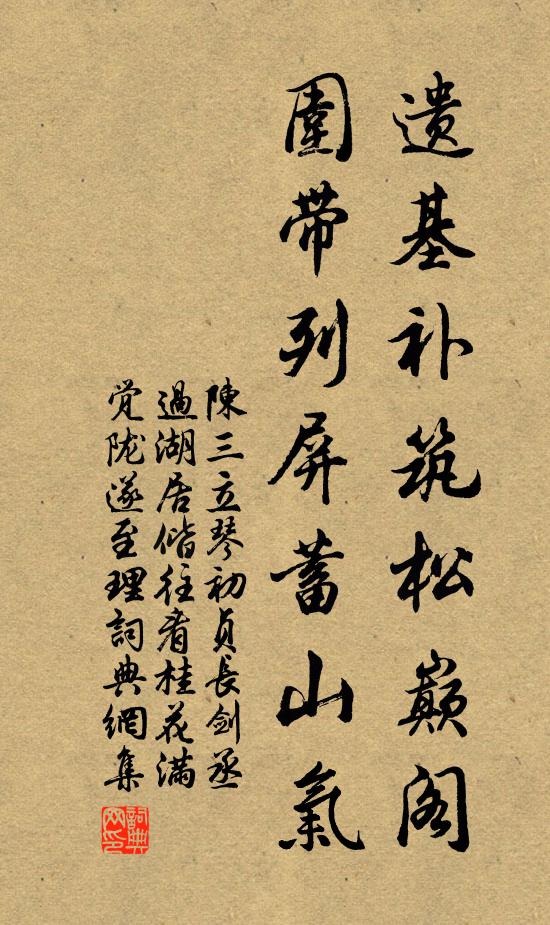 遗基补筑松巅阁
圍带列屏蓄山氣
陳三立琴初貞長剑丞
過湖居偕往看桂花滿
觉陇遂至理詞典網集
詞典网印